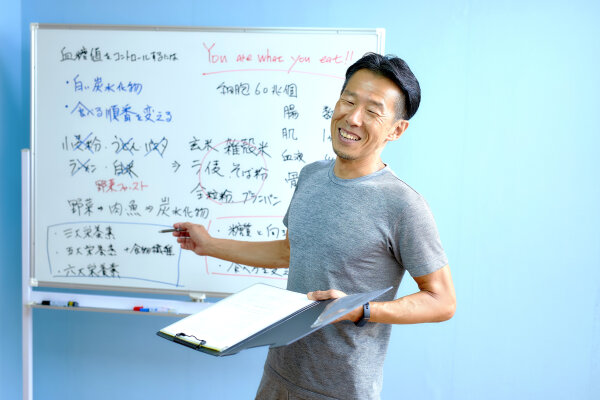 血糖値をコントロールするには
You are what you eat!!
・白い炭水化物
・食べる順番を変える
細胞60兆個
腸
肌
血液
骨
小麦粉・うどん・パスタ
ラーメン・白米
⇒
玄米 雑穀米
そば粉
全粒粉 ブランパン
野菜ファースト
野菜⇒肉魚⇒炭水化物
・三大栄養素
・五大栄養素 +食物繊維
・六大栄養素
・糖質と向